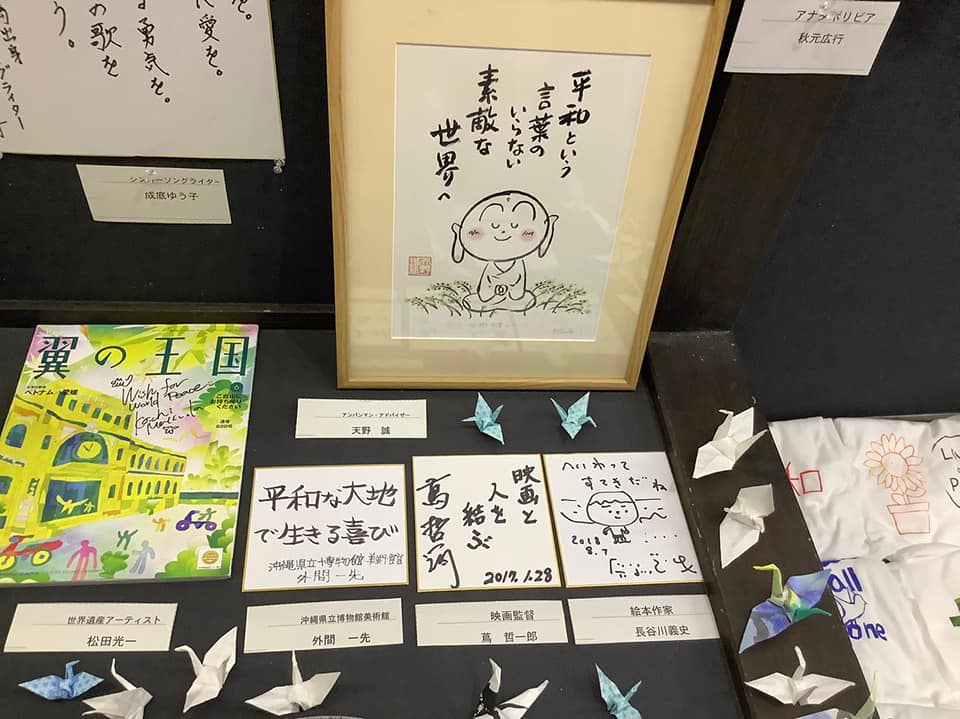 を。
に愛を。
勇気を。
の歌を
う。
シンガーソングライター
成底ゆう子
平和という
言葉の
いらない
素敵な
世界へ
アンパンマン・アドバイザー
天野 誠
秋元広行
翼の王国
ベトナム
愛媛
Wish for
World Peace
ご自由に
お持ち帰り
ください
世界遺産アーティスト
松田光一
平和な大地
で生きる喜び
沖縄県立博物館・美術館
外間 一先
沖縄県立博物館美術館
外間 一先
映画と
人を
結ぶ
蔦哲一朗
2017.1.28
映画監督
蔦 哲一郎
へいわって
すてきだね
2018
8.7
絵本作家
長谷川義史
all
one